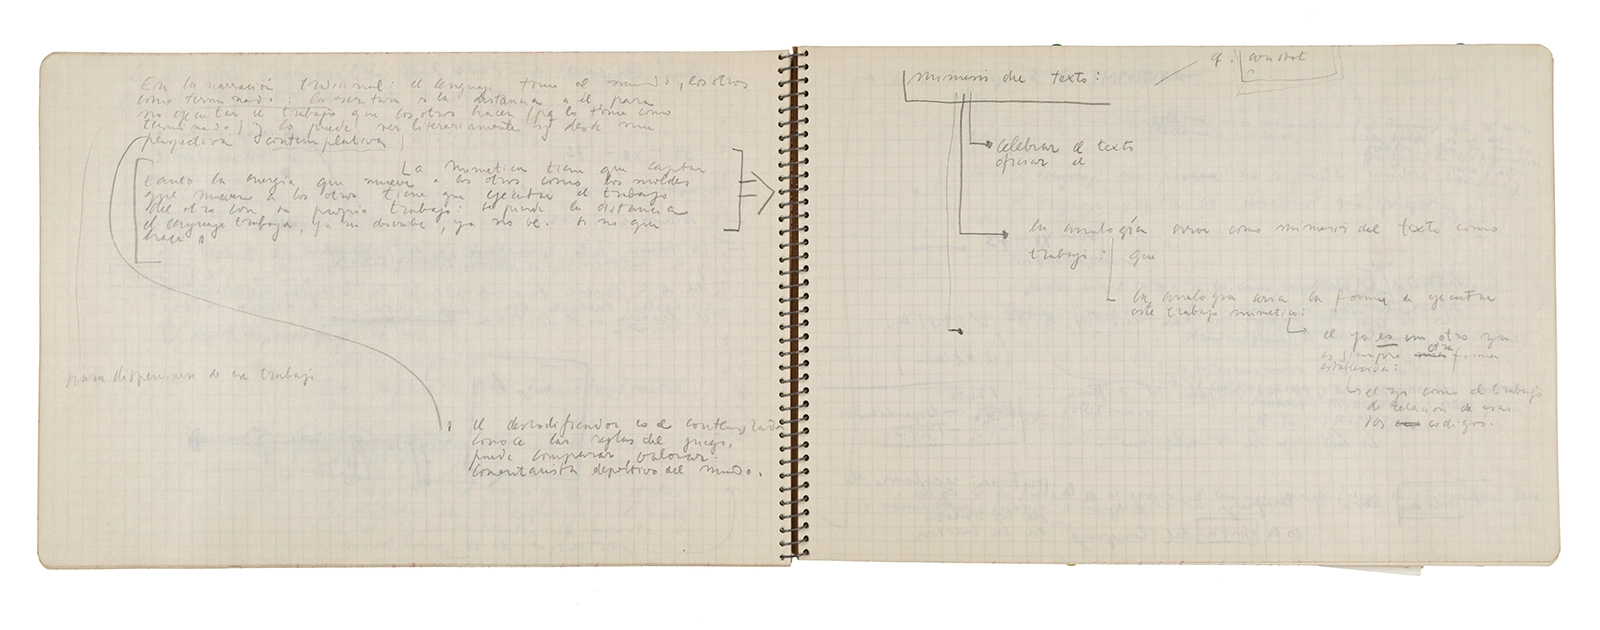 En la narración tradicional: el lenguaje toma al mundo, los otros
como terminado: la escritura es la distancia a él, para
no ejecutar el trabajo que los otros hacen (pq lo toma como
terminado) y lo puede ver literariamente desde una
perspectiva contemplativa
La mimética tiene que captar
tanto la energía que mueve a los otros como los moldes
que mueven a los otros tiene que ejecutar el trabajo
del otro con su propio trabajo: se pierde la distancia
el lenguaje trabaja, ya no describe, ya no ve. sino que
hace
para dispensarse de ese trabajo
el descodificador es el contemplador
conoce las reglas del juego,
puede comparar, valorar.
comentarista deportivo del mundo.
mimesis del texto:
celebrar el texto
oficiar el
la analogía sirve como mimesis del texto como
trabajo: que
la analogía sería la forma de ejecutar
este trabajo mimético:
el yo es un otro ya
es siempre otra forma
establecida:
el yo como el trabajo
de relación de esas
los codigos.